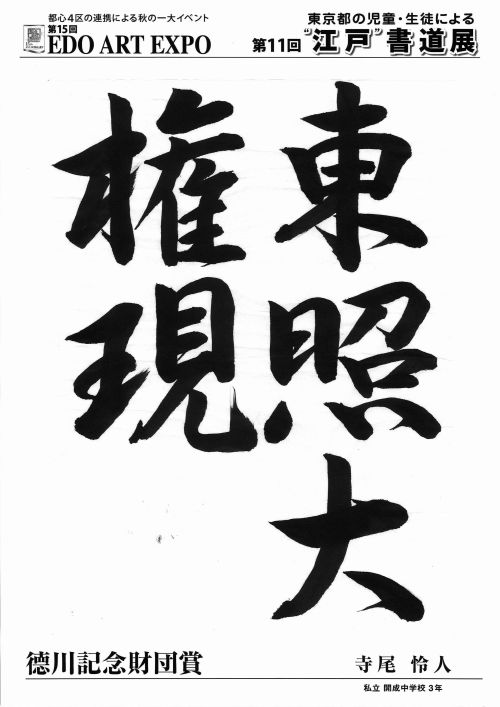 都心4区の連携による秋の一大イベント
第15回
EDO ART EXPO
東京都の児童・生徒による
第11回 “江戸”書道展
東照大
権現
徳川記念財団賞
寺尾 怜人
私立 開成中学校 3年